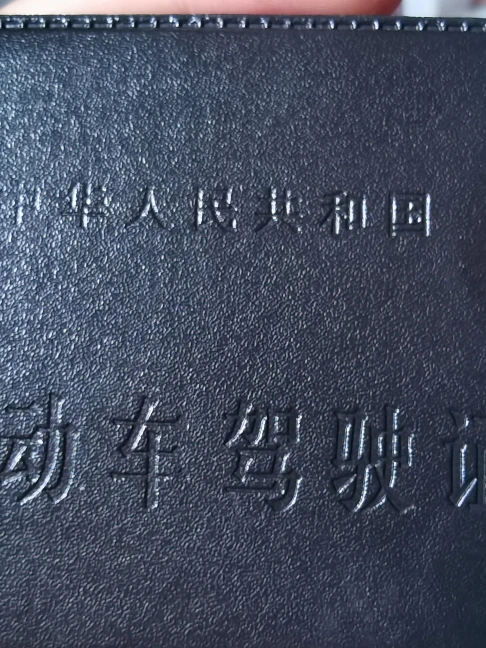 中华人民共和国
动车驾驶证